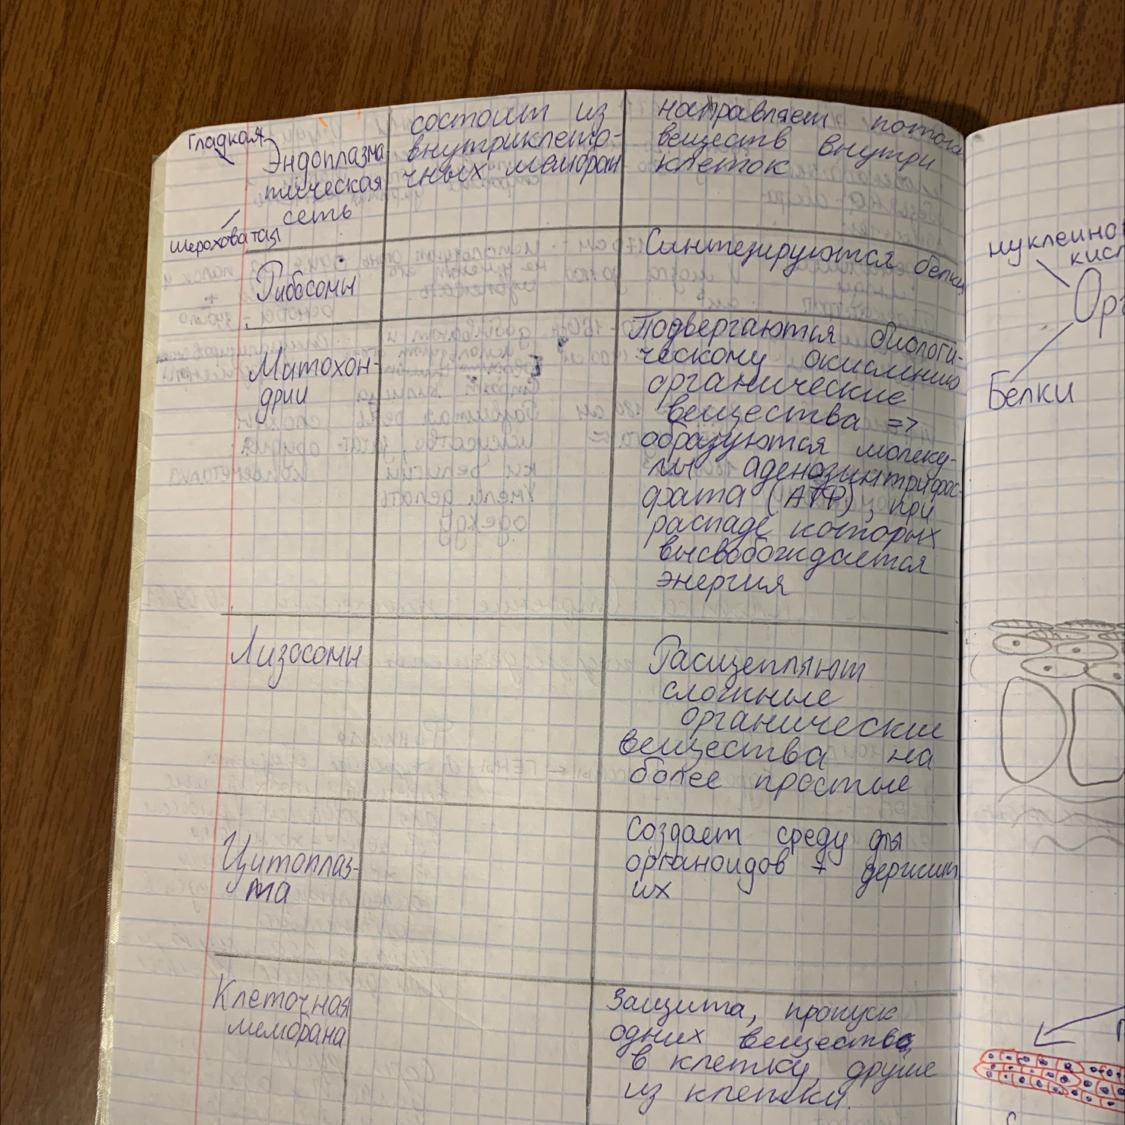 гладкая
Эндоплазма
тическая
сеть
шероховатая
состоит из
внутриклето-
чных мембран
направляет потока
веществ внутри
клеток
Рибосомы
Синтезируются белки
Митохон-
дрии
Подвергаются биологи-
ческому окислению
органические
вещества =>
образуются молеку-
лы аденозинтрифос-
фата (АТФ), при
распаде которых
высвобождается
энергия
Лизосомы
Расщепляют
сложные
органические
вещества на
более простые
Цитоплаз-
ма
Создает среду для
органоидов + держит
их
Клеточная
мембрана
Защита, пропуск
одних веществ
в клетку, другие
из клетки.
нуклеино
кисл
Орг
Белки